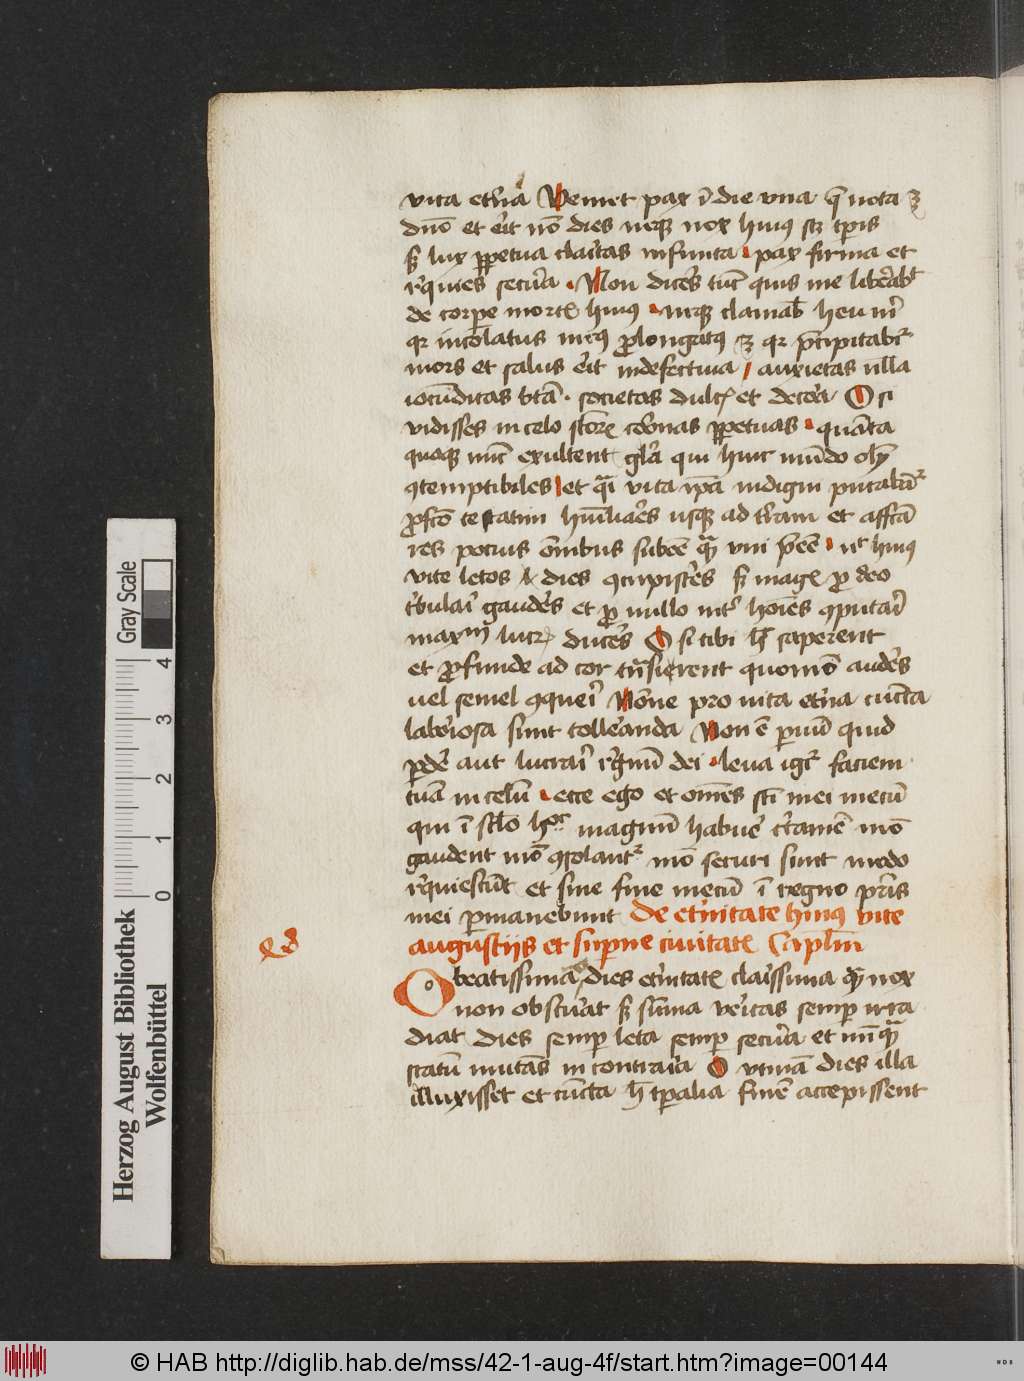 vita et'na Veniet pax ī die vna q̄ nota ꝫ
dnō et erit nō dies neqꝫ nox huiꝰ scꝫ tꝑis
sꝫ lux ꝑpetua claritas infinita pax firma et
req'es secura . Non dices tūc quis me liberabt
de corpe mortꝭ huiꝰ neqꝫ clamab heu m̄
qr incolatus meꝰ ꝓlongatꝰ ꝫ qr p̄cipitabr
mors et salus erit indefectiua / anxietas nlla
iocūditas btā . societas dulcꝭ et decora O si
vidisses in celo sctorꝭ coronas ꝑpetuas quāta
quoqꝫ nūc exultent gl'a qui huic mūdo olim
ꝯtemptibiles et qᵃi vita ipā indigni putabār
ꝓfcō te statim humiliares usqꝫ ad t'ram et affcā
res potius omnibus subēē qᵃ vni p̄ēē nᶜ huiꝰ
vite letos dies ꝯcupisces sꝫ magꝭ ꝓ deo
t'bulari gauderes et ꝓ nullo int' hoīes ꝯputari
maxᵐ lucrꝭ duceres O si tibi h̄ saperent
et ꝓfunde ad cor trāsirent quomō auderes
uel semel ꝯqueri Nōne pro uita et'na cūcta
laboriosa sunt tolleranda Non ē paruū quid
ꝑdere aut lucrari regnū dei leua igr faciem
tuā in celū ecce ego et omēs scti mei mecū
qui ī sclo hoc magnū habuere c'tamē mō
gaudent mō ꝯsolantᵣ mō securi sunt modo
req'escūt et sine fine mecū ī regno pr̄is
mei ꝑmanebunt De et'nitate huiꝰ vite
augustijs et suꝑne ciuitatꝭ Caplm
O beatissima dies et'nitatꝭ clarissima q̄ nox
non obscurat sꝫ sūma veritas semꝑ irra
diat dies semꝑ leta semꝑ secura et nūqᵃ
statū mutās in contraria O vtinā dies illa
illuxisset et cūcta h̄ tꝑalia finē accepissent
Herzog August Bibliothek
Wolfenbüttel
Gray Scale
0 1 2 3 4
© HAB http://diglib.hab.de/mss/42-1-aug-4f/start.htm?image=00144